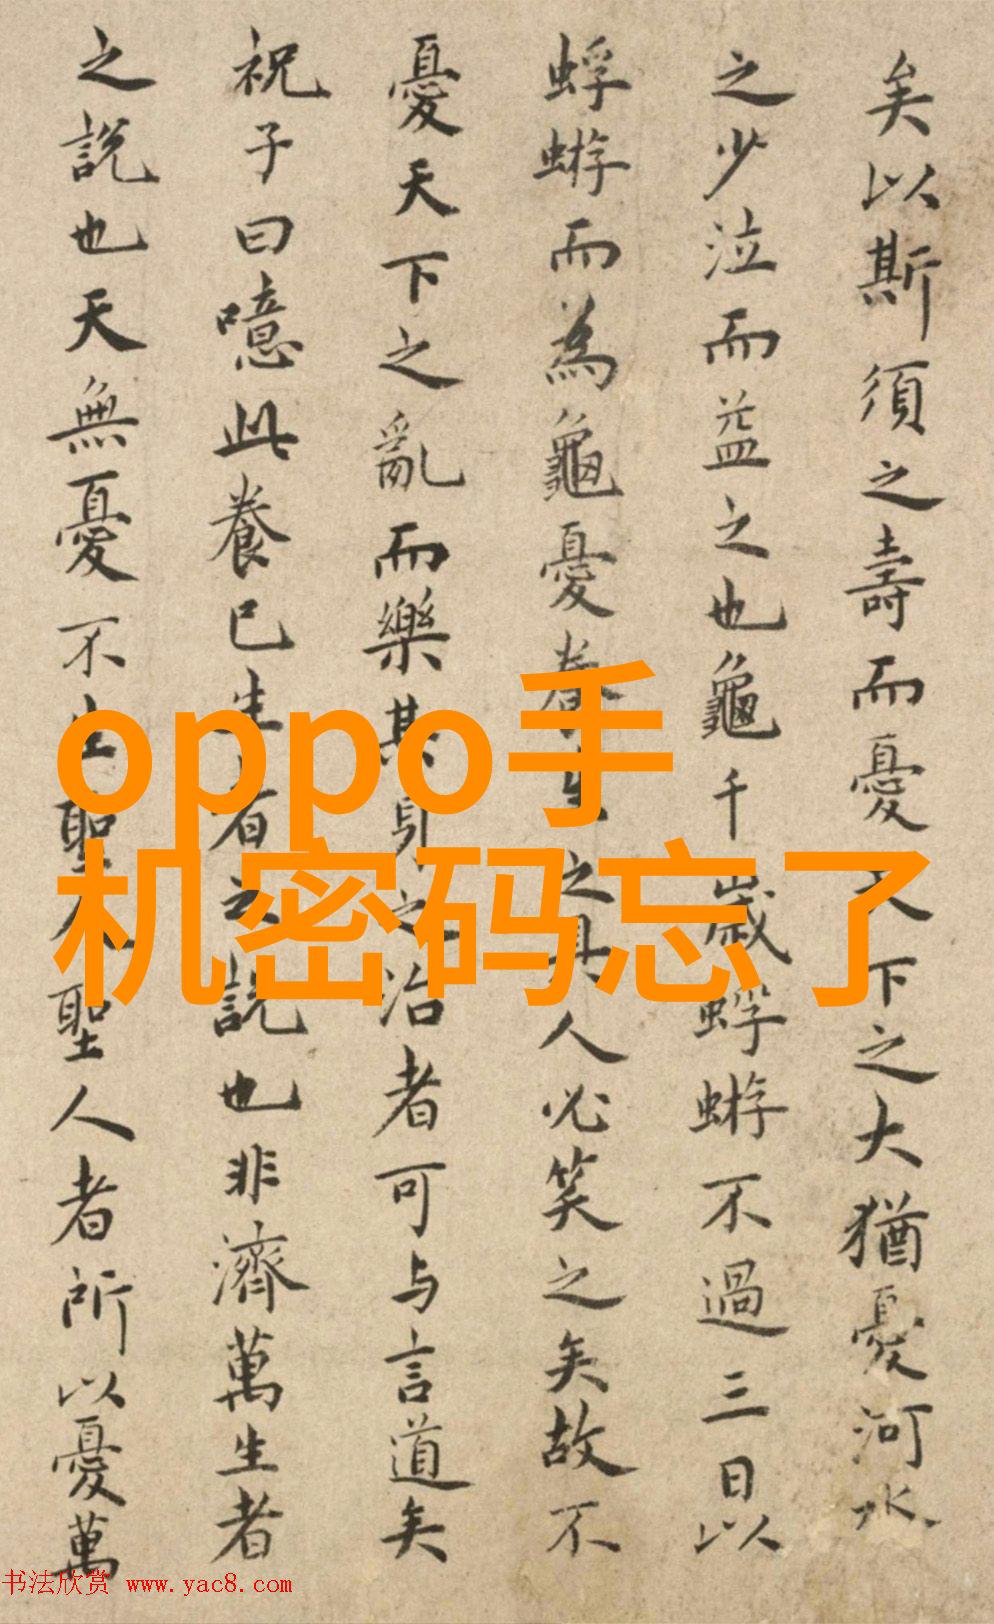 矣以斯須之壽而憂天下之大猶憂河水
之少泣而益之也龜千歲蜉蝣不過三日以
蜉蝣而為龜憂養生之具人必笑之矣故不
憂天下之亂而樂其身之治者可与言道矣
祝子曰噫此養已生者之說也非濟萬生者
之說也天無憂不生聖人聖人者所以憂萬
oppo手
机密码忘了
书法欣赏 www.yac8.com